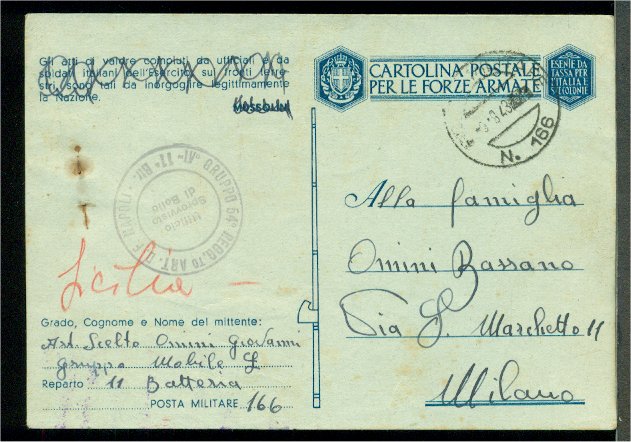 Gli atti di valore compiuti da ufficiali e da
soldati italiani dell'Esercito sui fronti terre-
stri, sono tali da inorgoglire legittimamente
la Nazione.
CARTOLINA POSTALE
PER LE FORZE ARMATE
ESENTE DA
TASSA PER
L'ITALIA E
S/ COLONIE
N. 166
GRUPPO 64° REGG.TO ART.
NAPOLI
Ufficio
Sprovvisto
di Bollo
Sicilia —
Alla famiglia
Omini Bassano
Via S. Marchetto 11
Milano
Grado, Cognome e Nome del mittente:
Art. Scelto Omini Giovanni
Gruppo Mobile
Reparto 11 Batteria
POSTA MILITARE 166